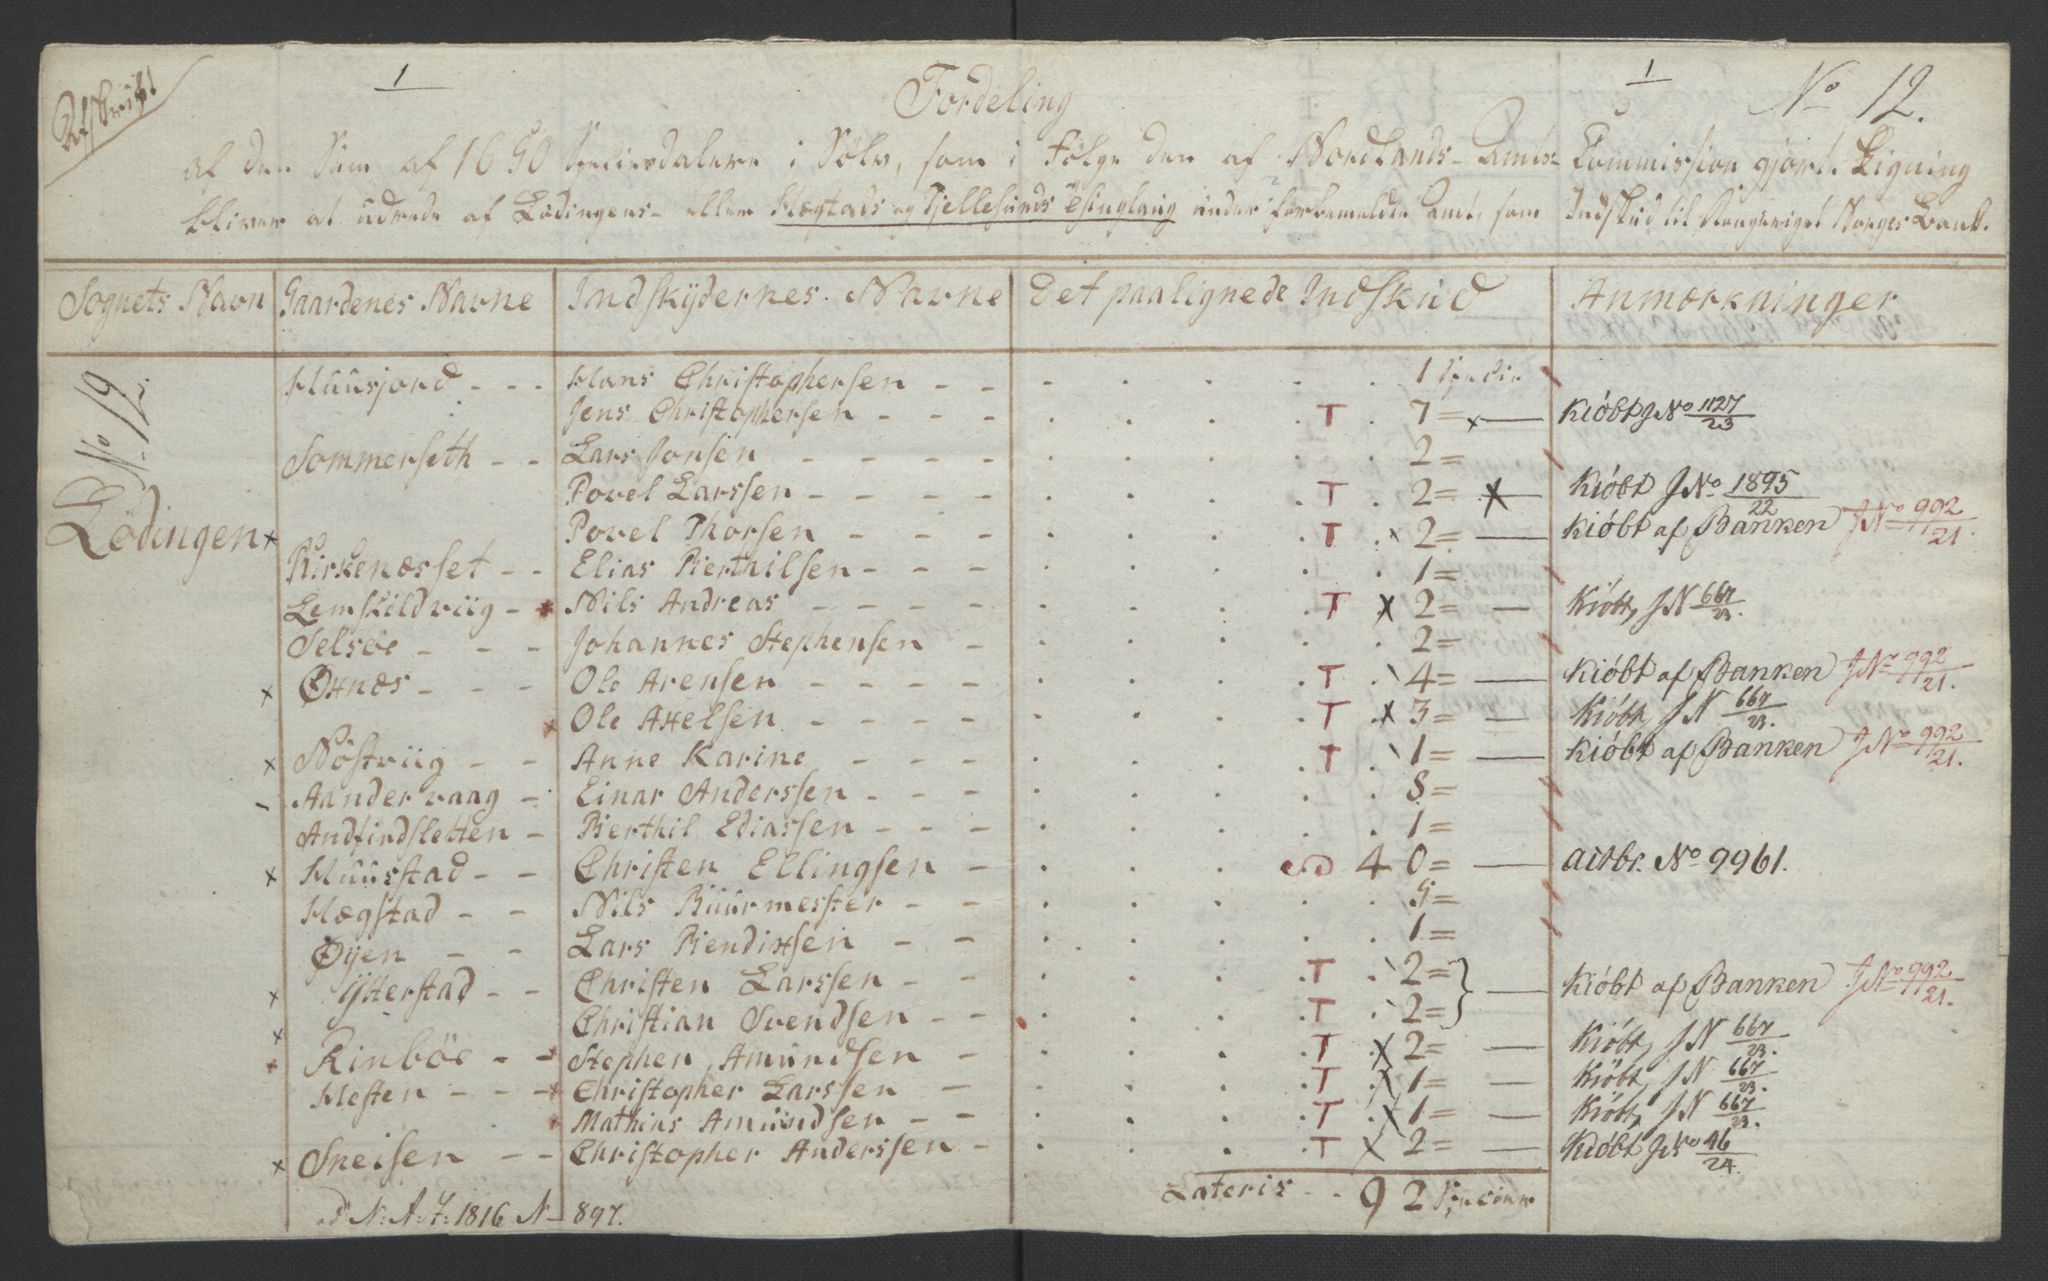 Afskrivt
1
Fordeling
1
No 12.
af den Sum af 1650 Speciesdalere i Sølv, som i Følge den af Nordlands Amts Commission gjorte Ligning
bliver at udrede af Lödingens eller Hægstads og Tjellesunds Tinglaug under forbemeldte Amt, som Indskud til Kongeriget Norges Bank.
Sognets Navn Gaardenes Navne Indskÿdernes Navne Det paalignede Indskud Anmærkninger
No 12.
Lödingen
Huusjord - - - Hans Christophersen - - 1 Specie
Jens Christophersen - - - T 7 = Kiöbt JNo 1127/23
Sommerseth - - Lars Jonsen - - - - 2 =
Povel Larssen - - - T 2 = Kiöbt JNo 1895/22
Povel Thorsen - - - T 2 = Kiöbt af Banken JNo 992/21
Kirkenæsset - - Elias Berthilsen - - - 1 =
Lemskildviig - Nils Andreas - - - - T 2 = Kiöbt JN 667/23.
Selsöe - - - Johannes Stephensen - 2 =
Oxnæs - - - Ole Arensen - - - - T 4 = Kiöbt af Banken JNo 992/21.
Ole Axelsen - - - - T 3 = Kiöbt JN 667/23.
Nöstviig - - Anne Karine - - - T 1 = Kiöbt af Banken JNo 992/21.
Aandervaag - Einar Anderssen - - - 8 =
Andfindsletten - Berthil Ediassen - - - 1 =
Huusstad - - Christen Ellingsen - 40 = No 9961.
Hægstad - - Nils Buurmester - - 5 =
Øyen - - Lars Bendixsen - - 1 =
Ytterstad - - Christen Larssen - - T 2 =
Kiöbt af Banken JNo 992/21.
Christian Svendsen - - T 2 =
Rinböe - - Stephen Amundsen - T 2 = Kiöbt JN 667/23.
Hesten - - - Christopher Larssen - T 1 = Kiöbt JN 667/23.
Mathias Amundsen - - T 1 = Kiöbt JN 667/23.
Sneisen - - Christopher Anderssen - T 2 = Kiöbt JNo 46/24.
Lateris - - 92 Specier
N: A: 7: 1816 N 897.